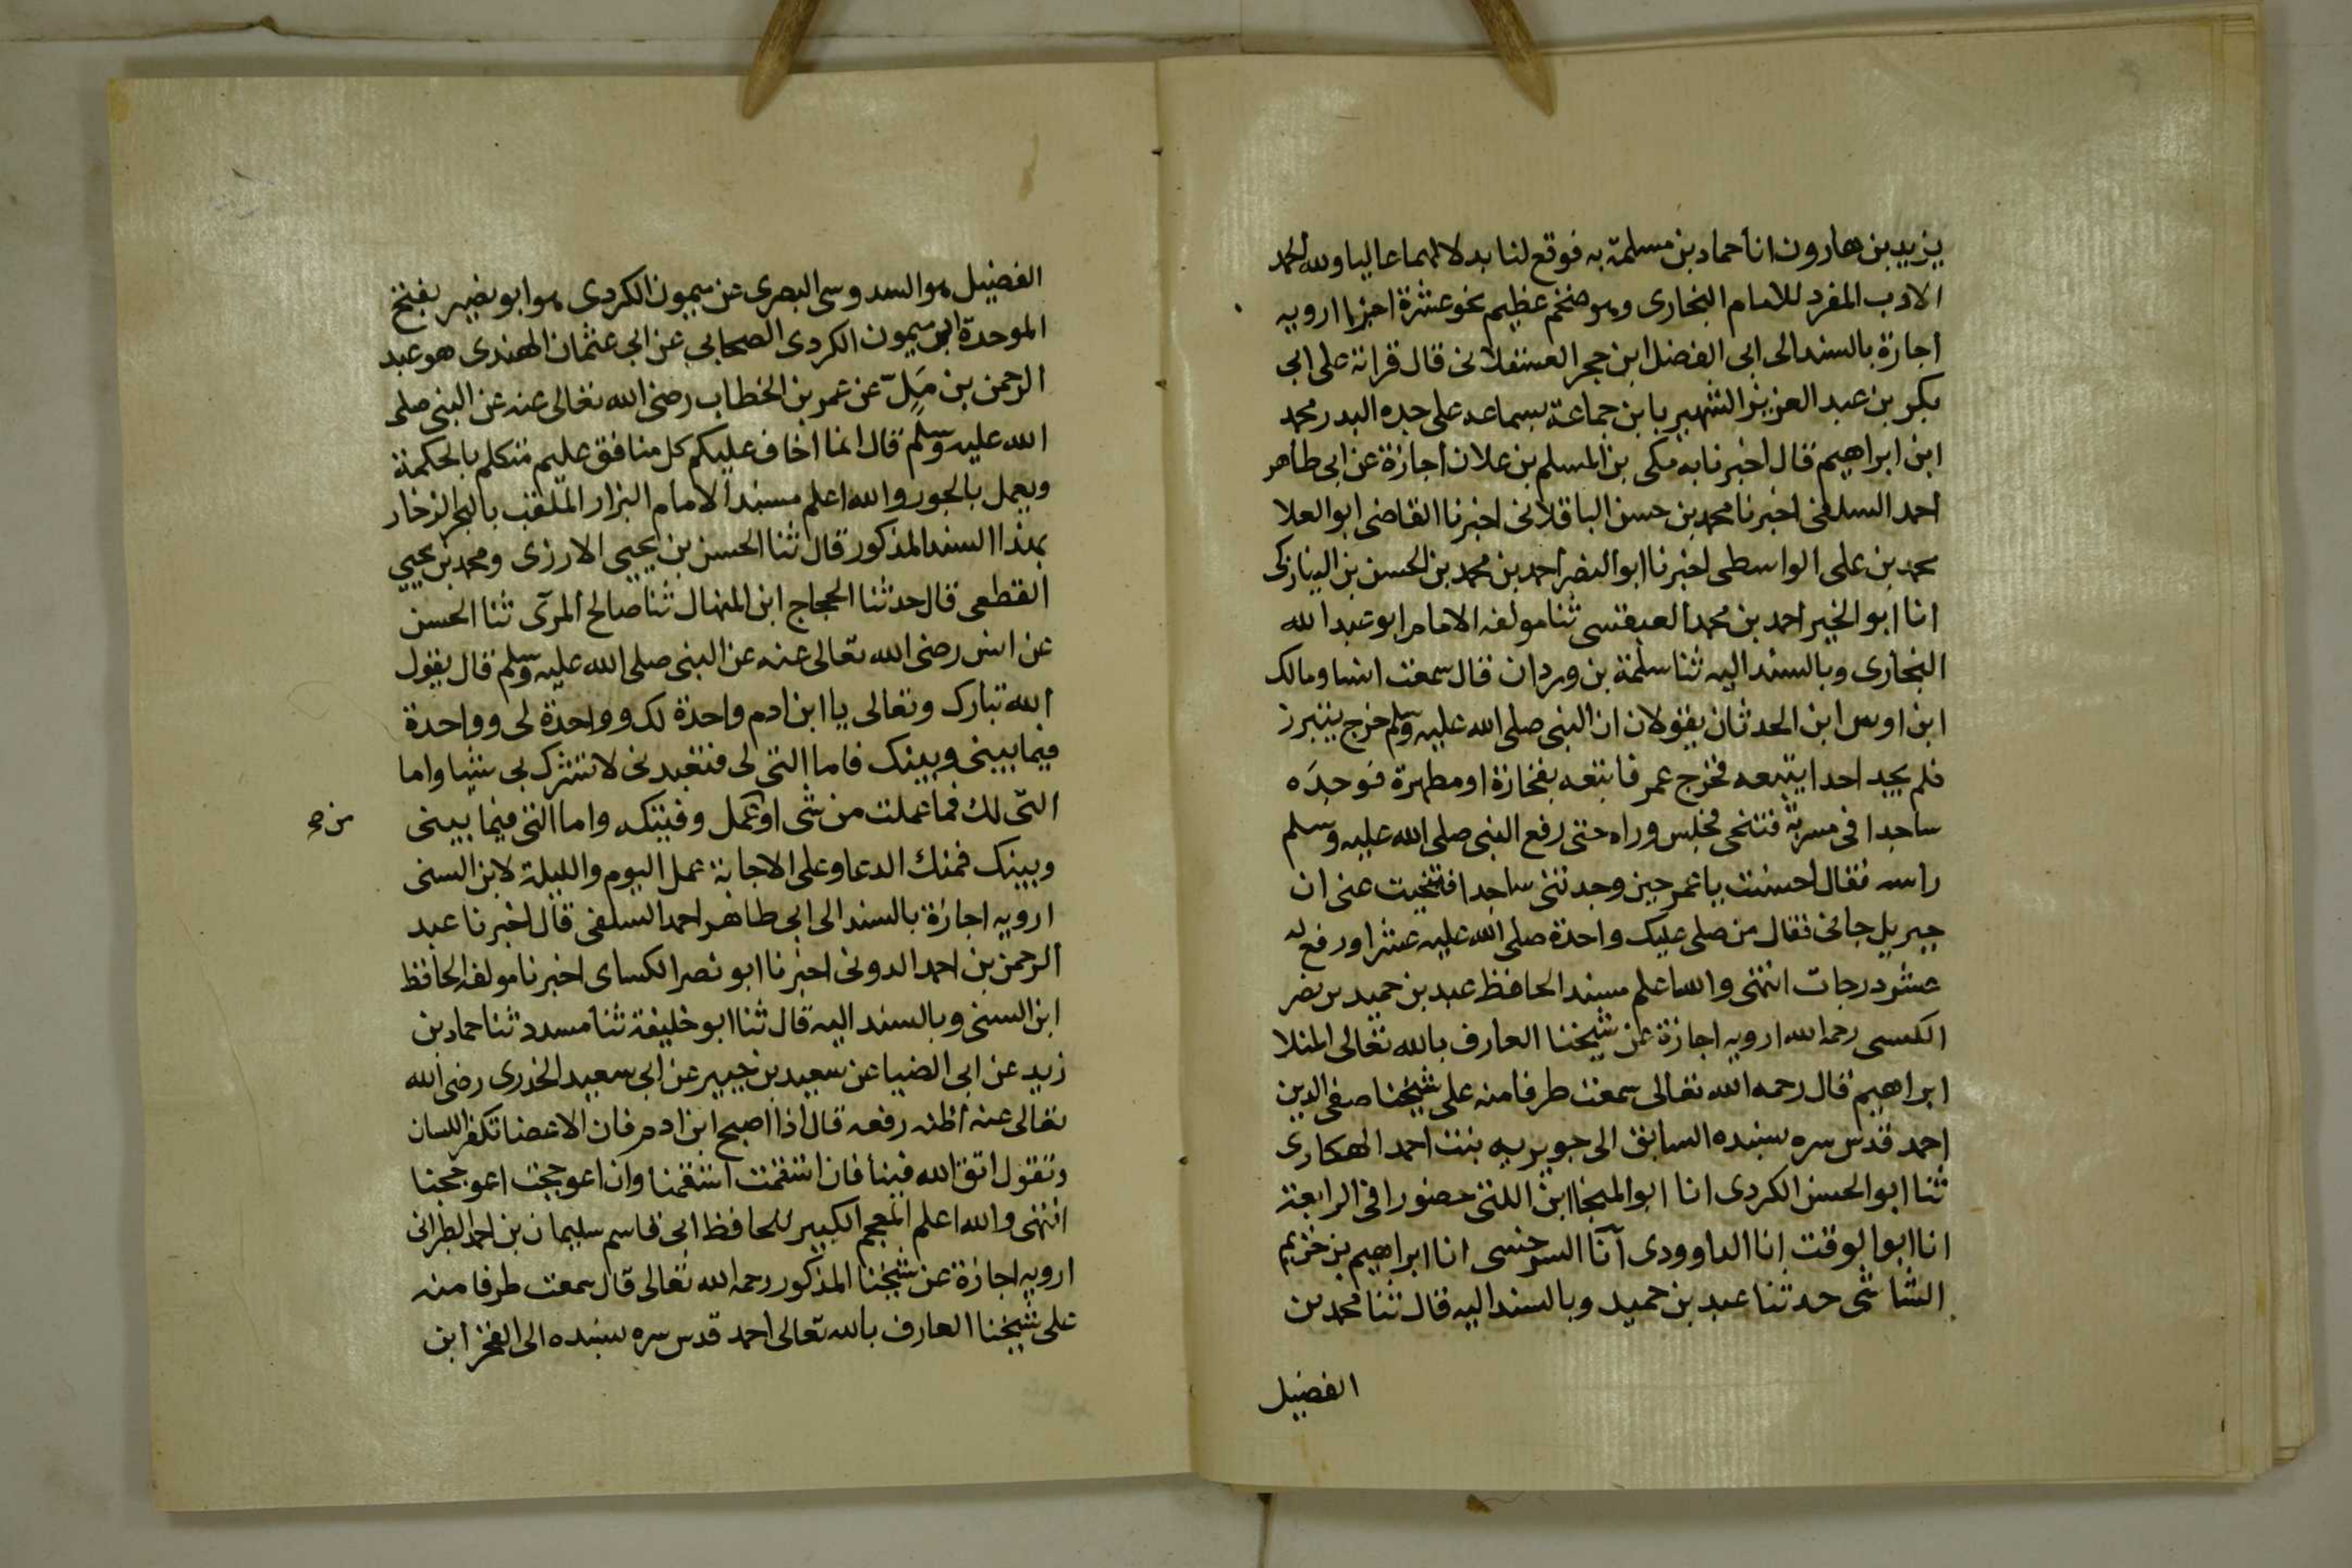 يزيد بن هارون انا حماد بن مسلمة به فوقع لنا بدلا لهما عاليا ولله الحمد
الادب المفرد للامام البخارى وهو ضخم عظيم نحو عشرة اجزا ارويه
اجازة بالسند الى ابى الفضل ابن حجر العسقلانى قال قراته على ابى
بكر بن عبد العزيز الشهير بابن جماعة بسماعه على جده البدر محمد
ابن ابراهيم قال اخبرنا به مكى بن المسلم بن علان اجازة عن ابى طاهر
احمد السلفى اخبرنا محمد بن حسن الباقلانى اخبرنا القاضى ابو العلا
محمد بن على الواسطى اخبرنا ابو النضر احمد بن محمد بن الحسن بن النيازكى
انا ابو الخير احمد بن محمد العبقسى ثنا مولفه الامام ابو عبد الله
البخارى وبالسند اليه ثنا سلمة بن وردان قال سمعت انسا ومالك
ابن اوس ابن الحدثان يقولان ان النبى صلى الله عليه وسلم خرج يتبرز
فلم يجد احدا يتبعه فخرج عمر فاتبعه بفخارة او مطهرة فوجدَه
ساجدا فى مسربة فتنحى فجلس وراه حتى رفع النبى صلى الله عليه وسلم
راسه فقال احسنت يا عمر حين وجدتنى ساجدا فتنحيت عنى ان
جبريل جائى فقال من صلى عليك واحدة صلى الله عليه عشرا ورفع له
عشر درجات انتهى والله اعلم مسند الحافظ عبد بن حميد بن نصر
الكسى رحمه الله ارويه اجازة عن شيخنا العارف بالله تعالى المنلا
ابراهيم قال رحمه الله تعالى سمعت طرفا منه على شيخنا صفى الدين
احمد قدس سره بسنده السابق الى جويريه بنت احمد الهكارى
ثنا ابو الحسن الكردى انا ابو المنجا ابن اللتى حضورا فى الرابعة
انا ابو الوقت انا الداوودى آنا السرخسى انا ابراهيم بن خزيم
الشاشى حدثنا عبد بن حميد وبالسند اليه قال ثنا محمد بن
الفضيل
الفضيل هو السدوسى البصرى عن ميمون الكردى هو ابو بصير بفتح
الموحدة ابن ميمون الكردى الصحابي عن ابى عثمان الهندى هو عبد
الرحمن بن مَلِّ عن عمر بن الخطاب رضى الله تعالى عنه عن النبى صلى
الله عليه وسلم قال انما اخاف عليكم كل منافق عليم متكلم بالحكمة
ويعمل بالجور والله اعلم مسند الامام البزار الملقب بالبحر الزخار
بهذا السند المذكور قال ثنا الحسن بن يحيى الارزى ومحمد بن يحيى
القطعى قال حدثنا الحجاج ابن المنهال ثنا صالح المرى ثنا الحسن
عن انس رضى الله تعالى عنه عن النبى صلى الله عليه وسلم قال يقول
الله تبارك وتعالى يا ابن ادم واحدة لك وواحدة لى وواحدة
فيما بينى وبينك فاما التى لى فتعبدنى لا تشرك بى شيا واما
التى لك فما عملت من شى او عمل وفيتكه واما التى فيما بينى
من صح
وبينك فمنك الدعا وعلى الاجابة عمل اليوم والليلة لابن السنى
ارويه اجازة بالسند الى ابى طاهر احمد السلفى قال اخبرنا عبد
الرحمن بن احمد الدونى اخبرنا ابو نصر الكساى اخبرنا مولفه الحافظ
ابن السنى وبالسند اليه قال ثنا ابو خليفة ثنا مسدد ثنا حماد بن
زيد عن ابى الضيا عن سعيد بن جبير عن ابى سعيد الخدرى رضى الله
تعالى عنه اظنه رفعه قال اذا اصبح ابن ادم فان الاعضا تكفر اللسان
وتقول اتق الله فينا فان استقمت استقمنا وان اعوججت اعوججنا
انتهى والله اعلم المعجم الكبير للحافظ ابى قاسم سليمان بن احمد الطبرانى
ارويه اجازة عن شيخنا المذكور رحمه الله تعالى قال سمعت طرفا منه
على شيخنا العارف بالله تعالى احمد قدس سره بسنده الى الفخر ابن